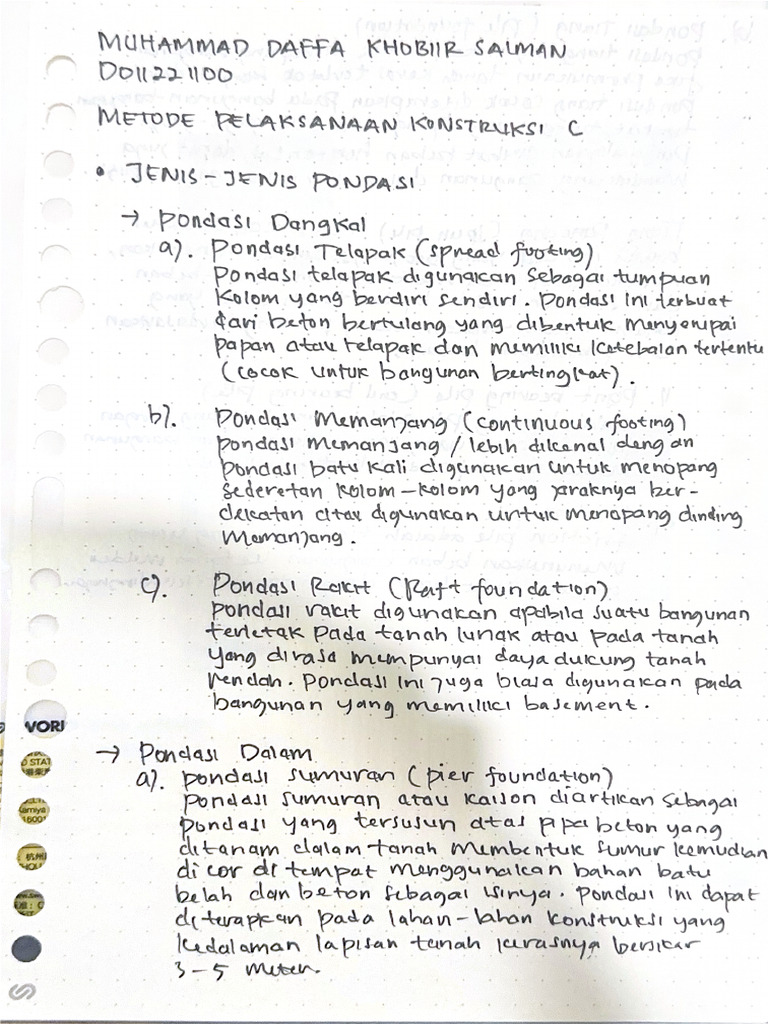 MUHAMMAD DAFFA KHOBIIR SALMAN
D011221100
METODE PELAKSANAAN KONSTRUKSI C
• JENIS-JENIS PONDASI
→ Pondasi Dangkal
a). Pondasi Telapak (spread footing)
Pondasi telapak digunakan sebagai tumpuan
kolom yang berdiri sendiri. Pondasi ini terbuat
dari beton bertulang yang dibentuk menyerupai
papan atau telapak dan memiliki ketebalan tertentu
(cocok untuk bangunan bertingkat).
b). Pondasi Memanjang (continuous footing)
pondasi memanjang / lebih dikenal dengan
pondasi batu kali digunakan untuk menopang
sederetan kolom-kolom yang jaraknya ber-
dekatan atau digunakan untuk menopang dinding
memanjang.
c). Pondasi Rakit (Raft foundation)
pondasi rakit digunakan apabila suatu bangunan
terletak pada tanah lunak atau pada tanah
yang dirasa mempunyai daya dukung tanah
rendah. Pondasi ini juga biasa digunakan pada
bangunan yang memiliki basement.
→ Pondasi Dalam
a). pondasi sumuran (pier foundation)
Pondasi sumuran atau kaison diartikan sebagai
pondasi yang tersusun atas pipa beton yang
ditanam dalam tanah membentuk sumur kemudian
dicor di tempat menggunakan bahan batu
belah dan beton sebagai isinya. Pondasi ini dapat
diterapkan pada lahan-lahan konstruksi yang
kedalaman lapisan tanah kerasnya berkisar
3-5 meter.
VORI